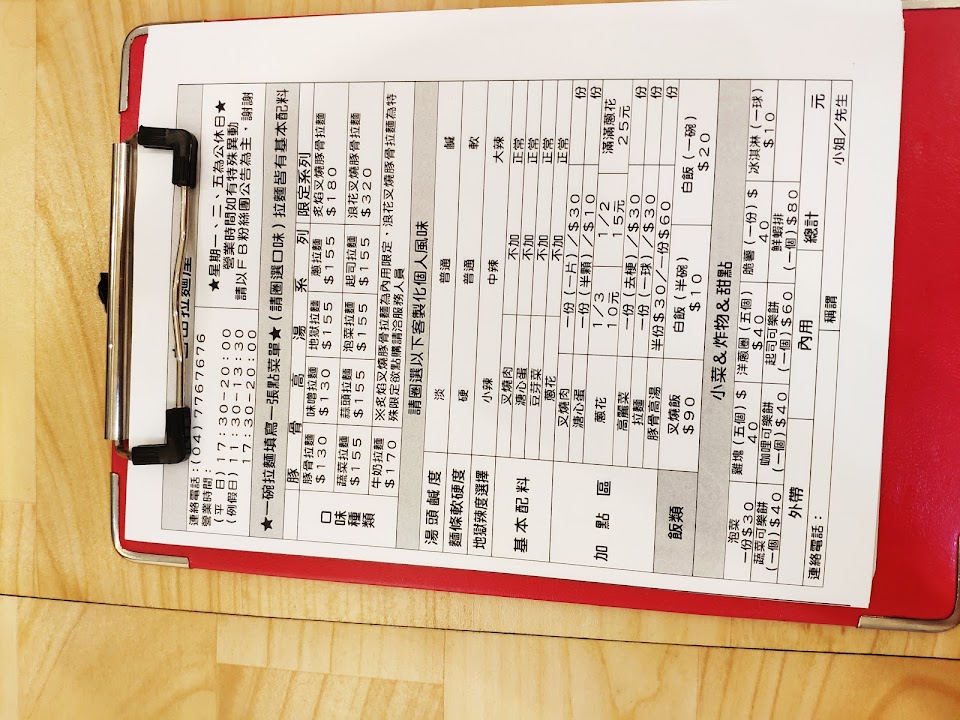 連絡電話:(04)7767676
營業時間:
(平 日) 17:30-20:00
(例假日) 11:30-13:30
17:30-20:00
★星期一、二、五為公休日★
營業時間如有特殊異動
請以FB粉絲團公告為主、謝謝
★一碗拉麵填寫一張點菜單★(請圈選口味)拉麵皆有基本配料
口味種類
豚骨高湯系列 限定系列
豚骨拉麵 味噌拉麵 地獄拉麵 蔥拉麵 炙焰叉燒豚骨拉麵
$130 $130 $155 $155 $180
蔬菜拉麵 蒜頭拉麵 泡菜拉麵 起司拉麵 浪花叉燒豚骨拉麵
$155 $155 $155 $155 $320
牛奶拉麵 ※炙焰叉燒豚骨拉麵為內用限定,浪花叉燒豚骨拉麵為特
$170 殊限定欲點購請洽服務人員
請圈選以下客製化個人風味
湯頭鹹度 淡 普通 鹹
麵條軟硬度 硬 普通 軟
地獄辣度選擇 小辣 中辣 大辣
基本配料
叉燒肉 不加 正常
溏心蛋 不加 正常
豆芽菜 不加 正常
蔥花 不加 正常
加點區
叉燒肉 一份(一片)/$30 份
溏心蛋 一份(半顆)/$10 份
蔥花 1/3 1/2 滿滿蔥花
10元 15元 25元
高麗菜 一份(去梗)/$30 份
拉麵 一份(一球)/$30 份
豚骨高湯 半份$30/一份$60 份
飯類 叉燒飯 白飯(半碗) 白飯(一碗)
$90 $10 $20
小菜&炸物&甜點
泡菜 雞塊(五個)$ 洋蔥圈(五個) 脆薯(一份)$ 冰淇淋(一球)
一份$30 40 $40 40 $10
蔬菜可樂餅 咖哩可樂餅 起司可樂餅 鮮蝦排
(一個)$40 (一個)$40 (一個)$60 (一個)$80
外帶 內用 總計 元
連絡電話: 稱謂 小姐/先生